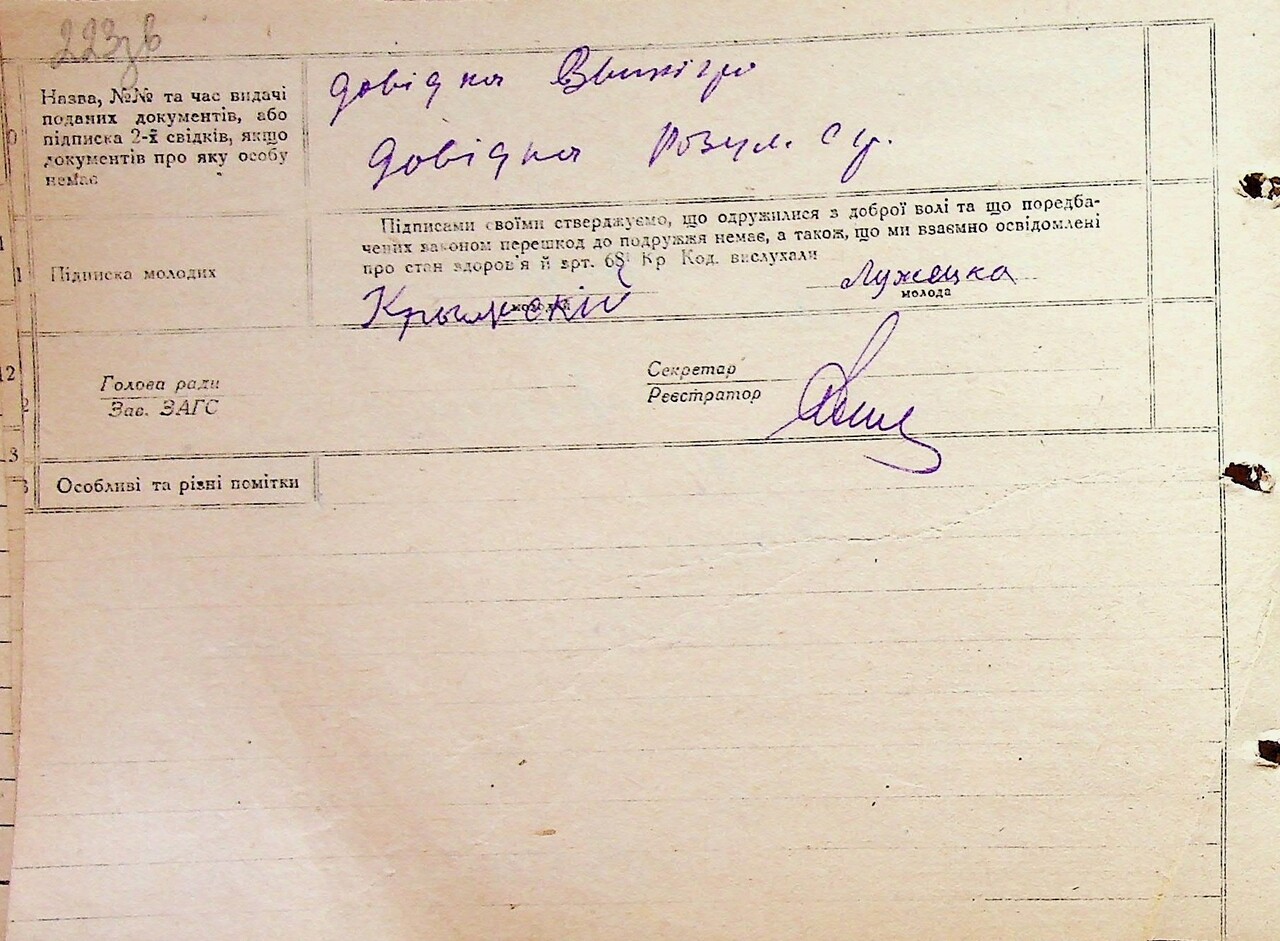 223зв
Назва, №№ та час видачі
поданих документів, або
підписка 2-х свідків, якщо
документів про яку особу
немає
довідка
довідка
Підписами своїми стверджуємо, що одружилися з доброї волі та що передба-
чених законом перешкод до подружжя немає, а також, що ми взаємно освідомлені
про стан здоров'я й арт. 68¹ Кр Код. вислухали
Підписка молодих
Крымскій
Лужецка
молода
Голова ради
Зав. ЗАГС
Секретар
Реєстратор
Особливі та різні помітки